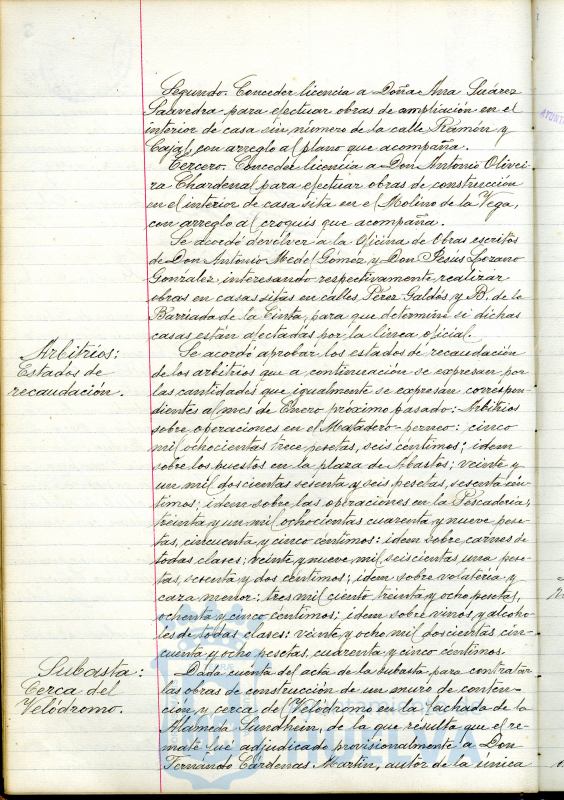 Segundo. Conceder licencia a Doña Ana Suárez
Saavedra para efectuar obras de ampliación en el
interior de casa sin número de la calle Ramón y
Cajal, con arreglo al plano que acompaña.
Tercero. Conceder licencia a Don Antonio Olivei-
ra Chardenal para efectuar obras de construcción
en el interior de casa sita en el Molino de la Vega,
con arreglo al croquis que acompaña.
Se acordó devolver a la Oficina de Obras escritos
de Don Antonio Medel Gómez y Don Jesús Lozano
González, interesando respectivamente realizar
obras en casas sitas en calles Pérez Galdós, y B. de la
Barriada de la Cinta, para que determine si dichas
casas están afectadas por la línea oficial.
Arbitrios:
Estados de
recaudación.
Se acordó aprobar los estados de recaudación
de los arbitrios que a continuación se expresan, por
las cantidades que igualmente se expresan correspon-
dientes al mes de Enero próximo pasado: Arbitrios
sobre operaciones en el Matadero-perneo: cinco
mil ochocientas trece pesetas, seis céntimos; idem
sobre los puestos en la plaza de Abastos; veinte y
un mil doscientas sesenta y seis pesetas, sesenta cén-
timos; idem sobre las operaciones en la Pescadería;
treinta y un mil ochocientas cuarenta y nueve pese-
tas, cincuenta y cinco céntimos: idem sobre carnes de
todas clases: veinte y nueve mil seiscientas una pese-
tas, sesenta y dos céntimos; idem sobre volatería y
caza menor: tres mil ciento treinta y ocho pesetas,
ochenta y cinco céntimos; idem sobre vinos y alcoho-
les de todas clases: veinte y ocho mil doscientas cin-
cuenta y ocho pesetas, cuarenta y cinco céntimos.
Subasta:
Cerca del
Velódromo.
Dada cuenta del acta de la subasta para contratar
las obras de construcción de un muro de conten-
ción y cerca del Velódromo en la fachada de la
Alameda Sundheim, de la que resulta que el re-
mate fué adjudicado provisionalmente a Don
Fernando Cárdenas Martín, autor de la única